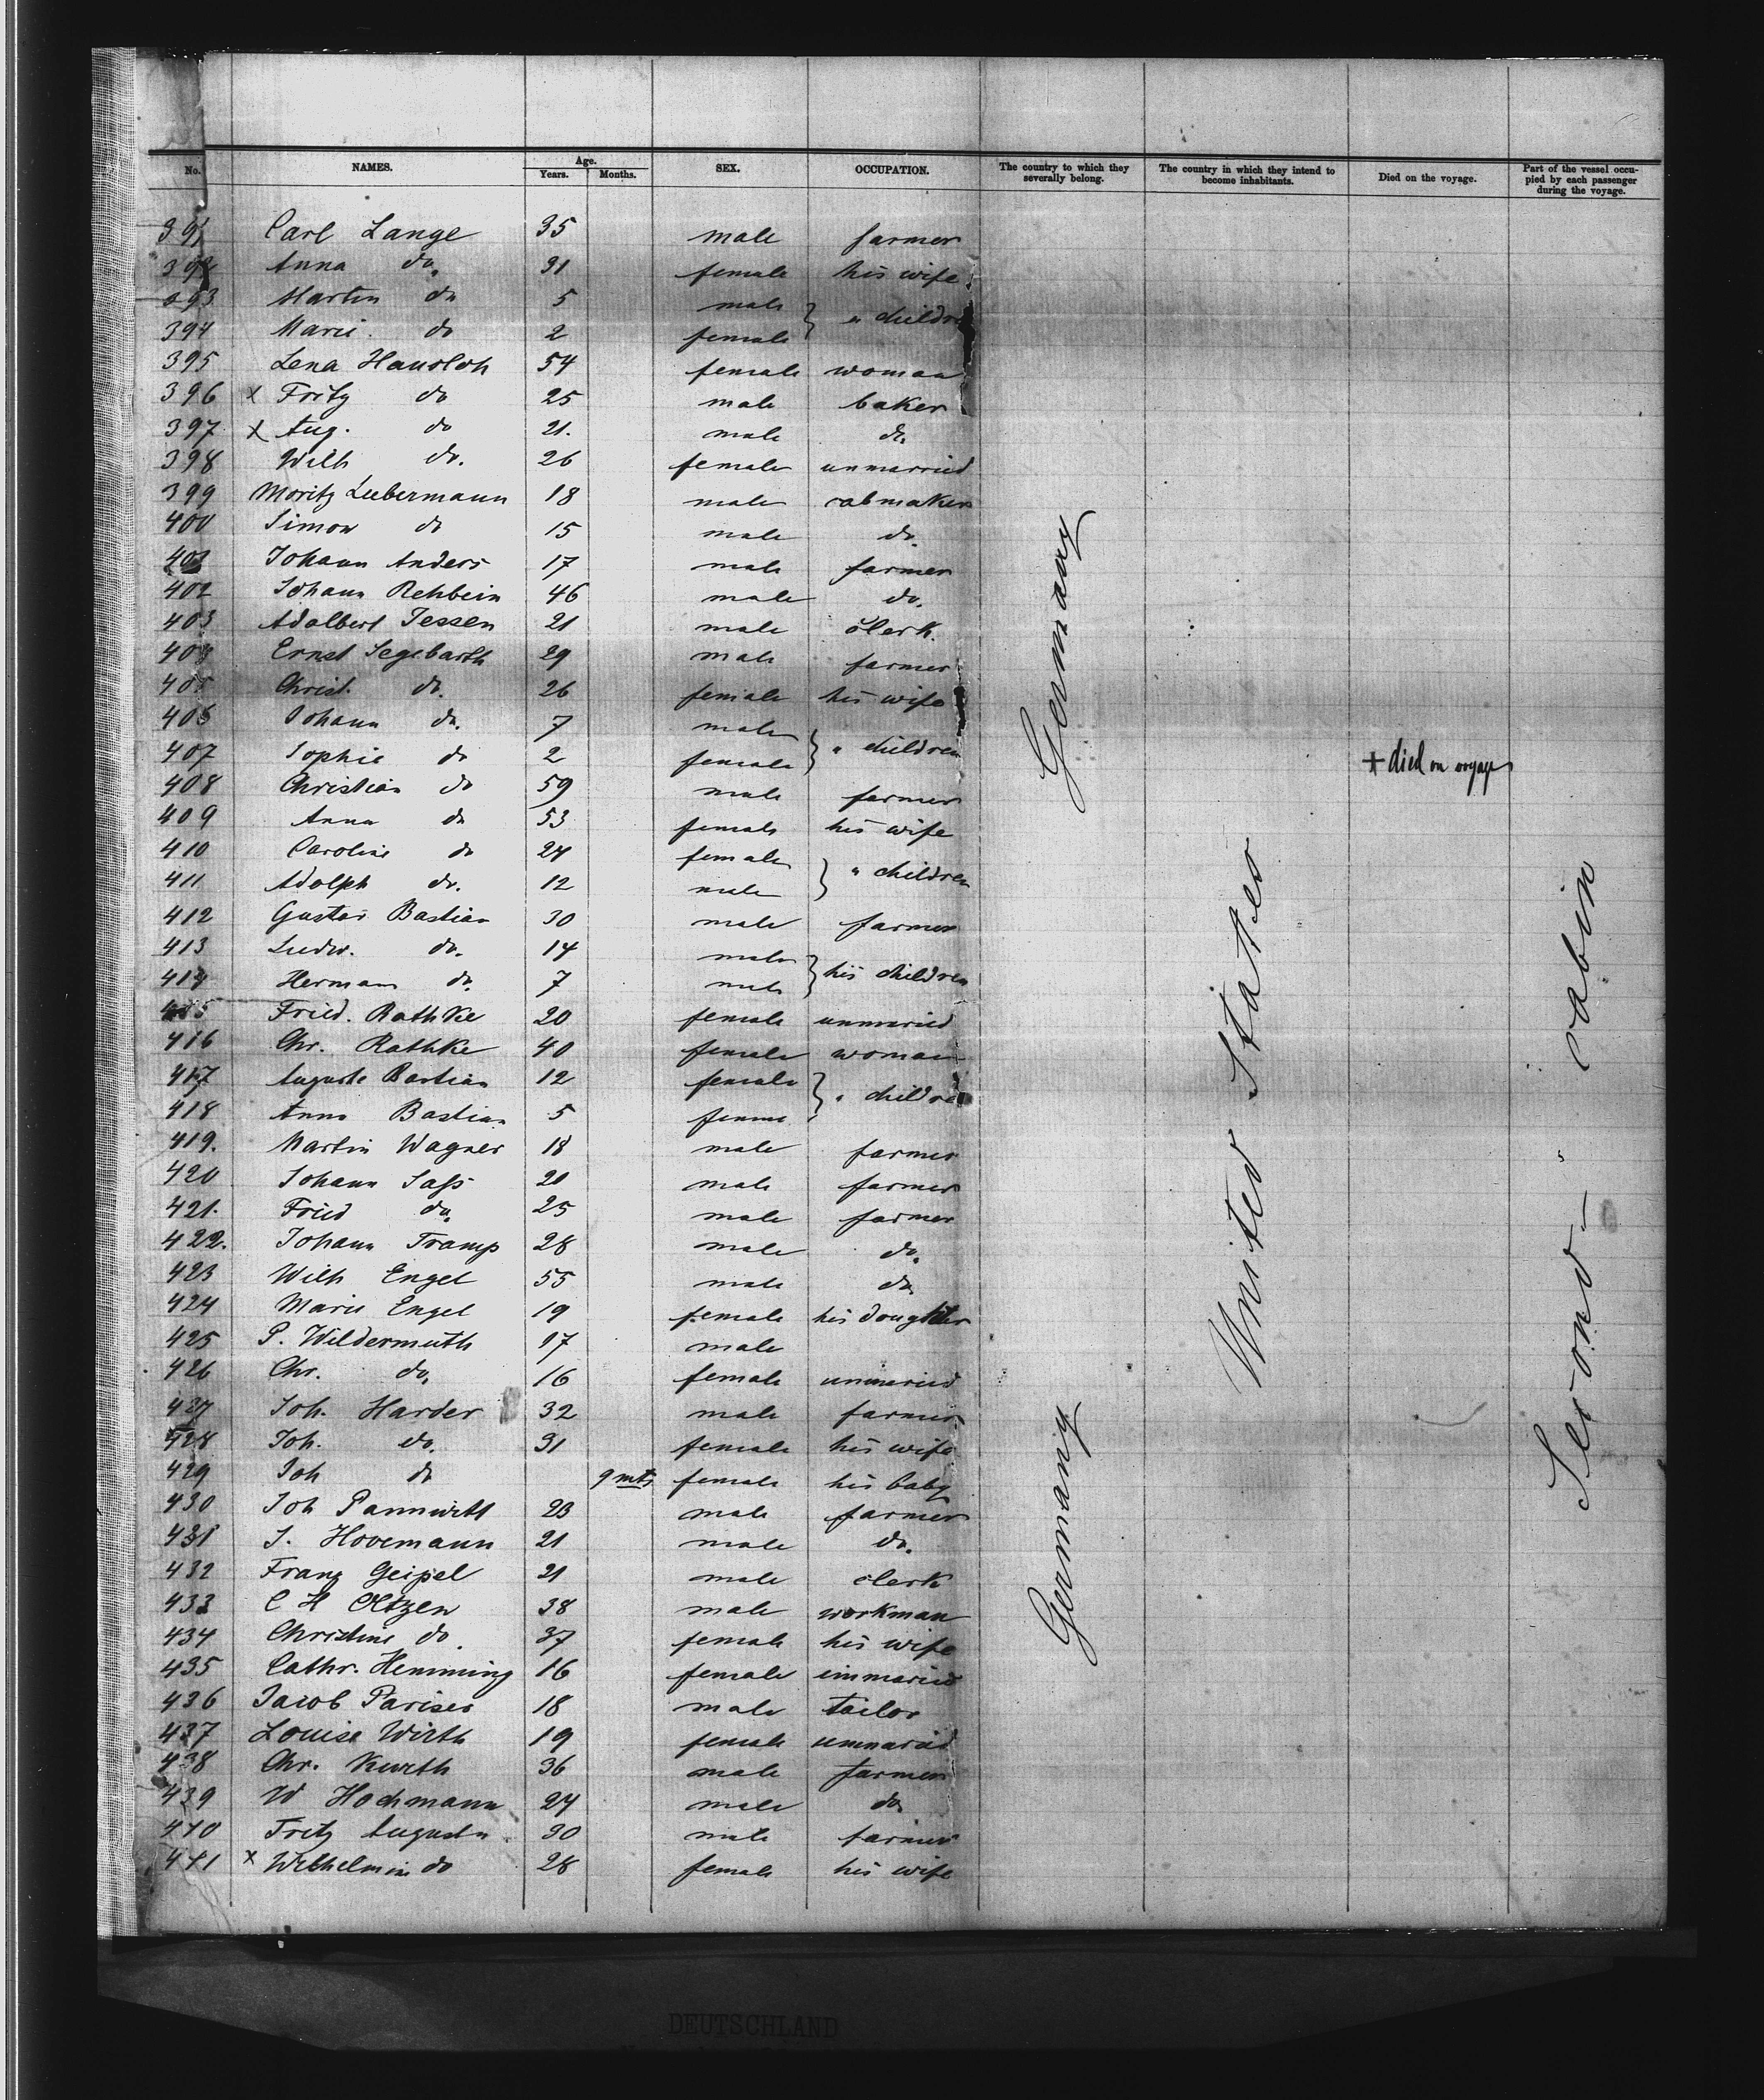 No. NAMES. Age. Years. Months. SEX. OCCUPATION. The country to which they severally belong. The country in which they intend to become inhabitants. Died on the voyage. Part of the vessel occupied by each passenger during the voyage.
391 Carl Lange 35 male farmer
392 Anna do. 31 female his wife
393 Martin do 5 male } " children
394 Marie do 2 female
395 Lena 54 female woman
396 x Fritz do 25 male baker
397 x Aug. do 21. male do.
398 Wilh do. 26 female unmarried
399 Moritz Liebermann 18 male cabmaker
400 Simon do 15 male do.
401 Johann Anders 17 male farmer
402 Johann Rehbein 46 male do.
403 Adalbert Jessen 21 male clerk.
404 Ernst Segebarth 29 male farmer
405 Christ. do. 26 female his wife
406 Johann do. 7 male } " children
407 Sophie do 2 female
+ died on voyage
408 Christian do 59 male farmer
409 Anna do 53 female his wife
410 Caroline do 24 female } " children
411 Adolph do. 12 male
412 Gustav Bastian 30 male farmer
413 Ludw. do. 14 male } his children
414 Hermann do. 7 male
415 Fried. Rathke 20 female unmaried
416 Chr. Rathke 40 female woman
417 Auguste Bastian 12 female } " children
418 Anna Bastian 5 female
419. Martin Wagner 18 male farmer
420 Johann Sass 20 male farmer
421. Fried do. 25 male farmer
422. Johann Tramp 28 male do.
423 Wilh Engel 55 male do.
424 Marie Engel 19 female his doughter
425 P. Wildermuth 17 male
426 Chr. do. 16 female unmaried
427 Joh. Harder 32 male farmer
428 Joh. do. 31 female his wife
429 Joh do 9 mts female his baby
430 Joh Pannwitt 23 male farmer
431 J. Hovemann 21 male do.
432 Franz Geipel 21 male clerk
433 C H Oltzen 38 male workman
434 Christine do. 37 female his wife
435 Cathr. Hemming 16 female unmaried
436 Jacob Pariser 18 male tailor
437 Louise Wirth 19 female unmaried
438 Chr. Kurth 36 male farmer
439 W Hochmann 24 male do.
440 Fritz Augustin 30 male farmer
441 x Wilhelmin do 28 female his wife
Germany
Germany
United States
Second cabin
DEUTSCHLAND